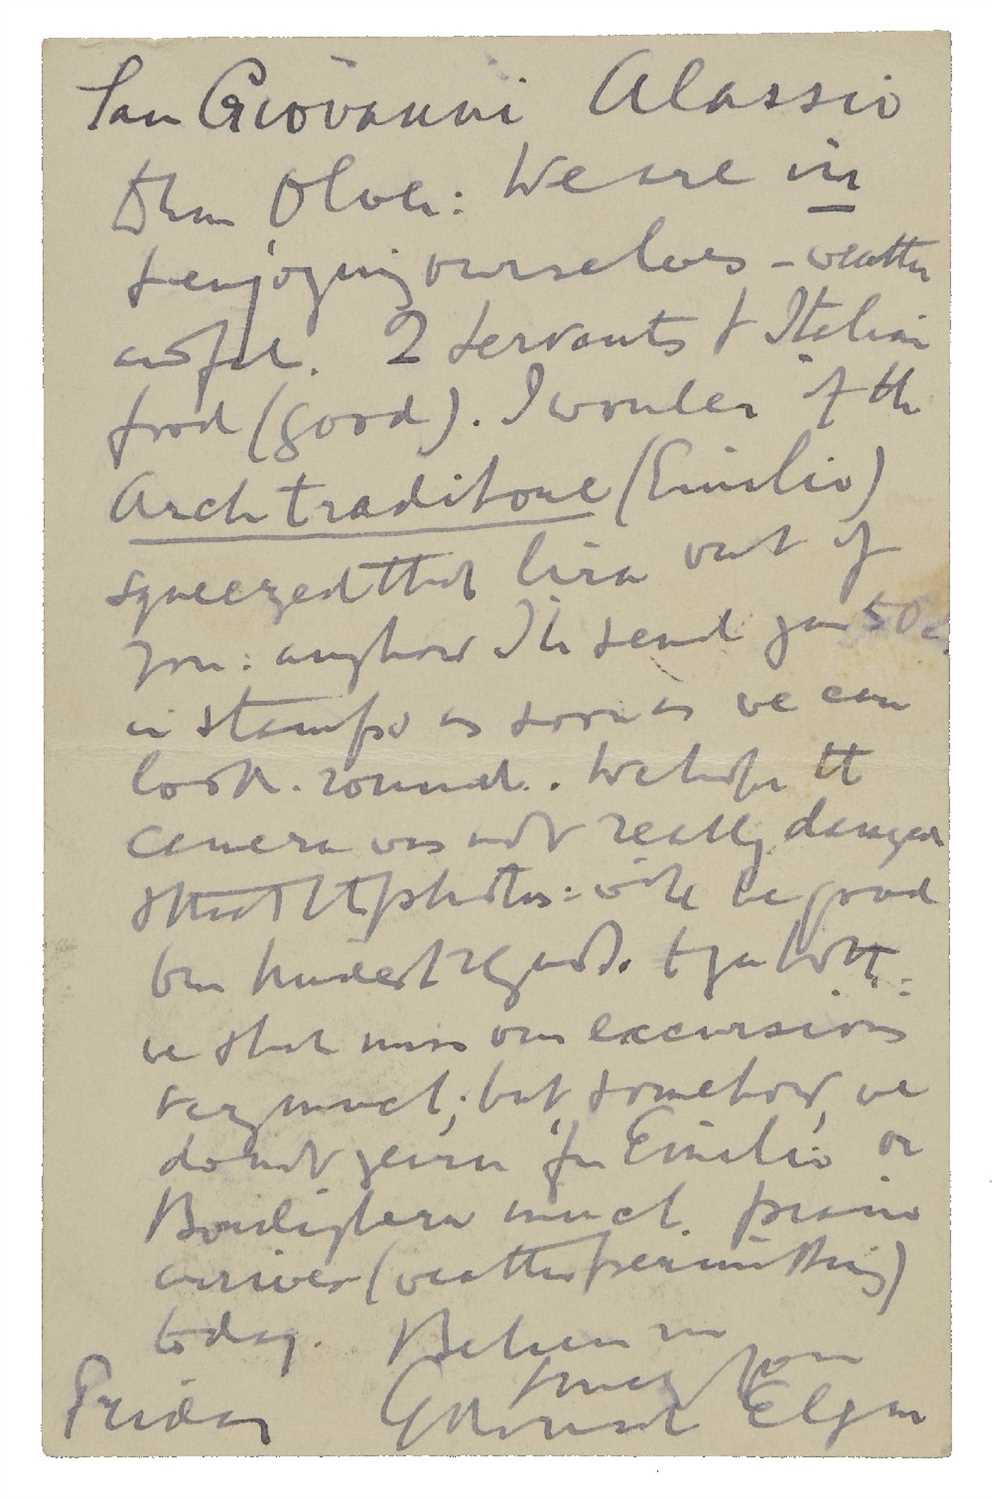 San Giovanni Alassio
Dear Oliver: We are in
& enjoying ourselves – weather
awful. 2 servants & Italian
food (good). I wonder if the
Arch traditore (Emilio)
squeezed that lira out of
you: anyhow I'll send you 50 c.
in stamps as soon as we can
look round. We hope the
camera was not really damaged
& that the photos: will be good
ben
we shall miss our excursions
very much; but, somehow, we
do not yearn for Emilio or
Bordighera much. piano
arrives (weather permitting)
today. Believe me
yours
Friday Edward Elgar